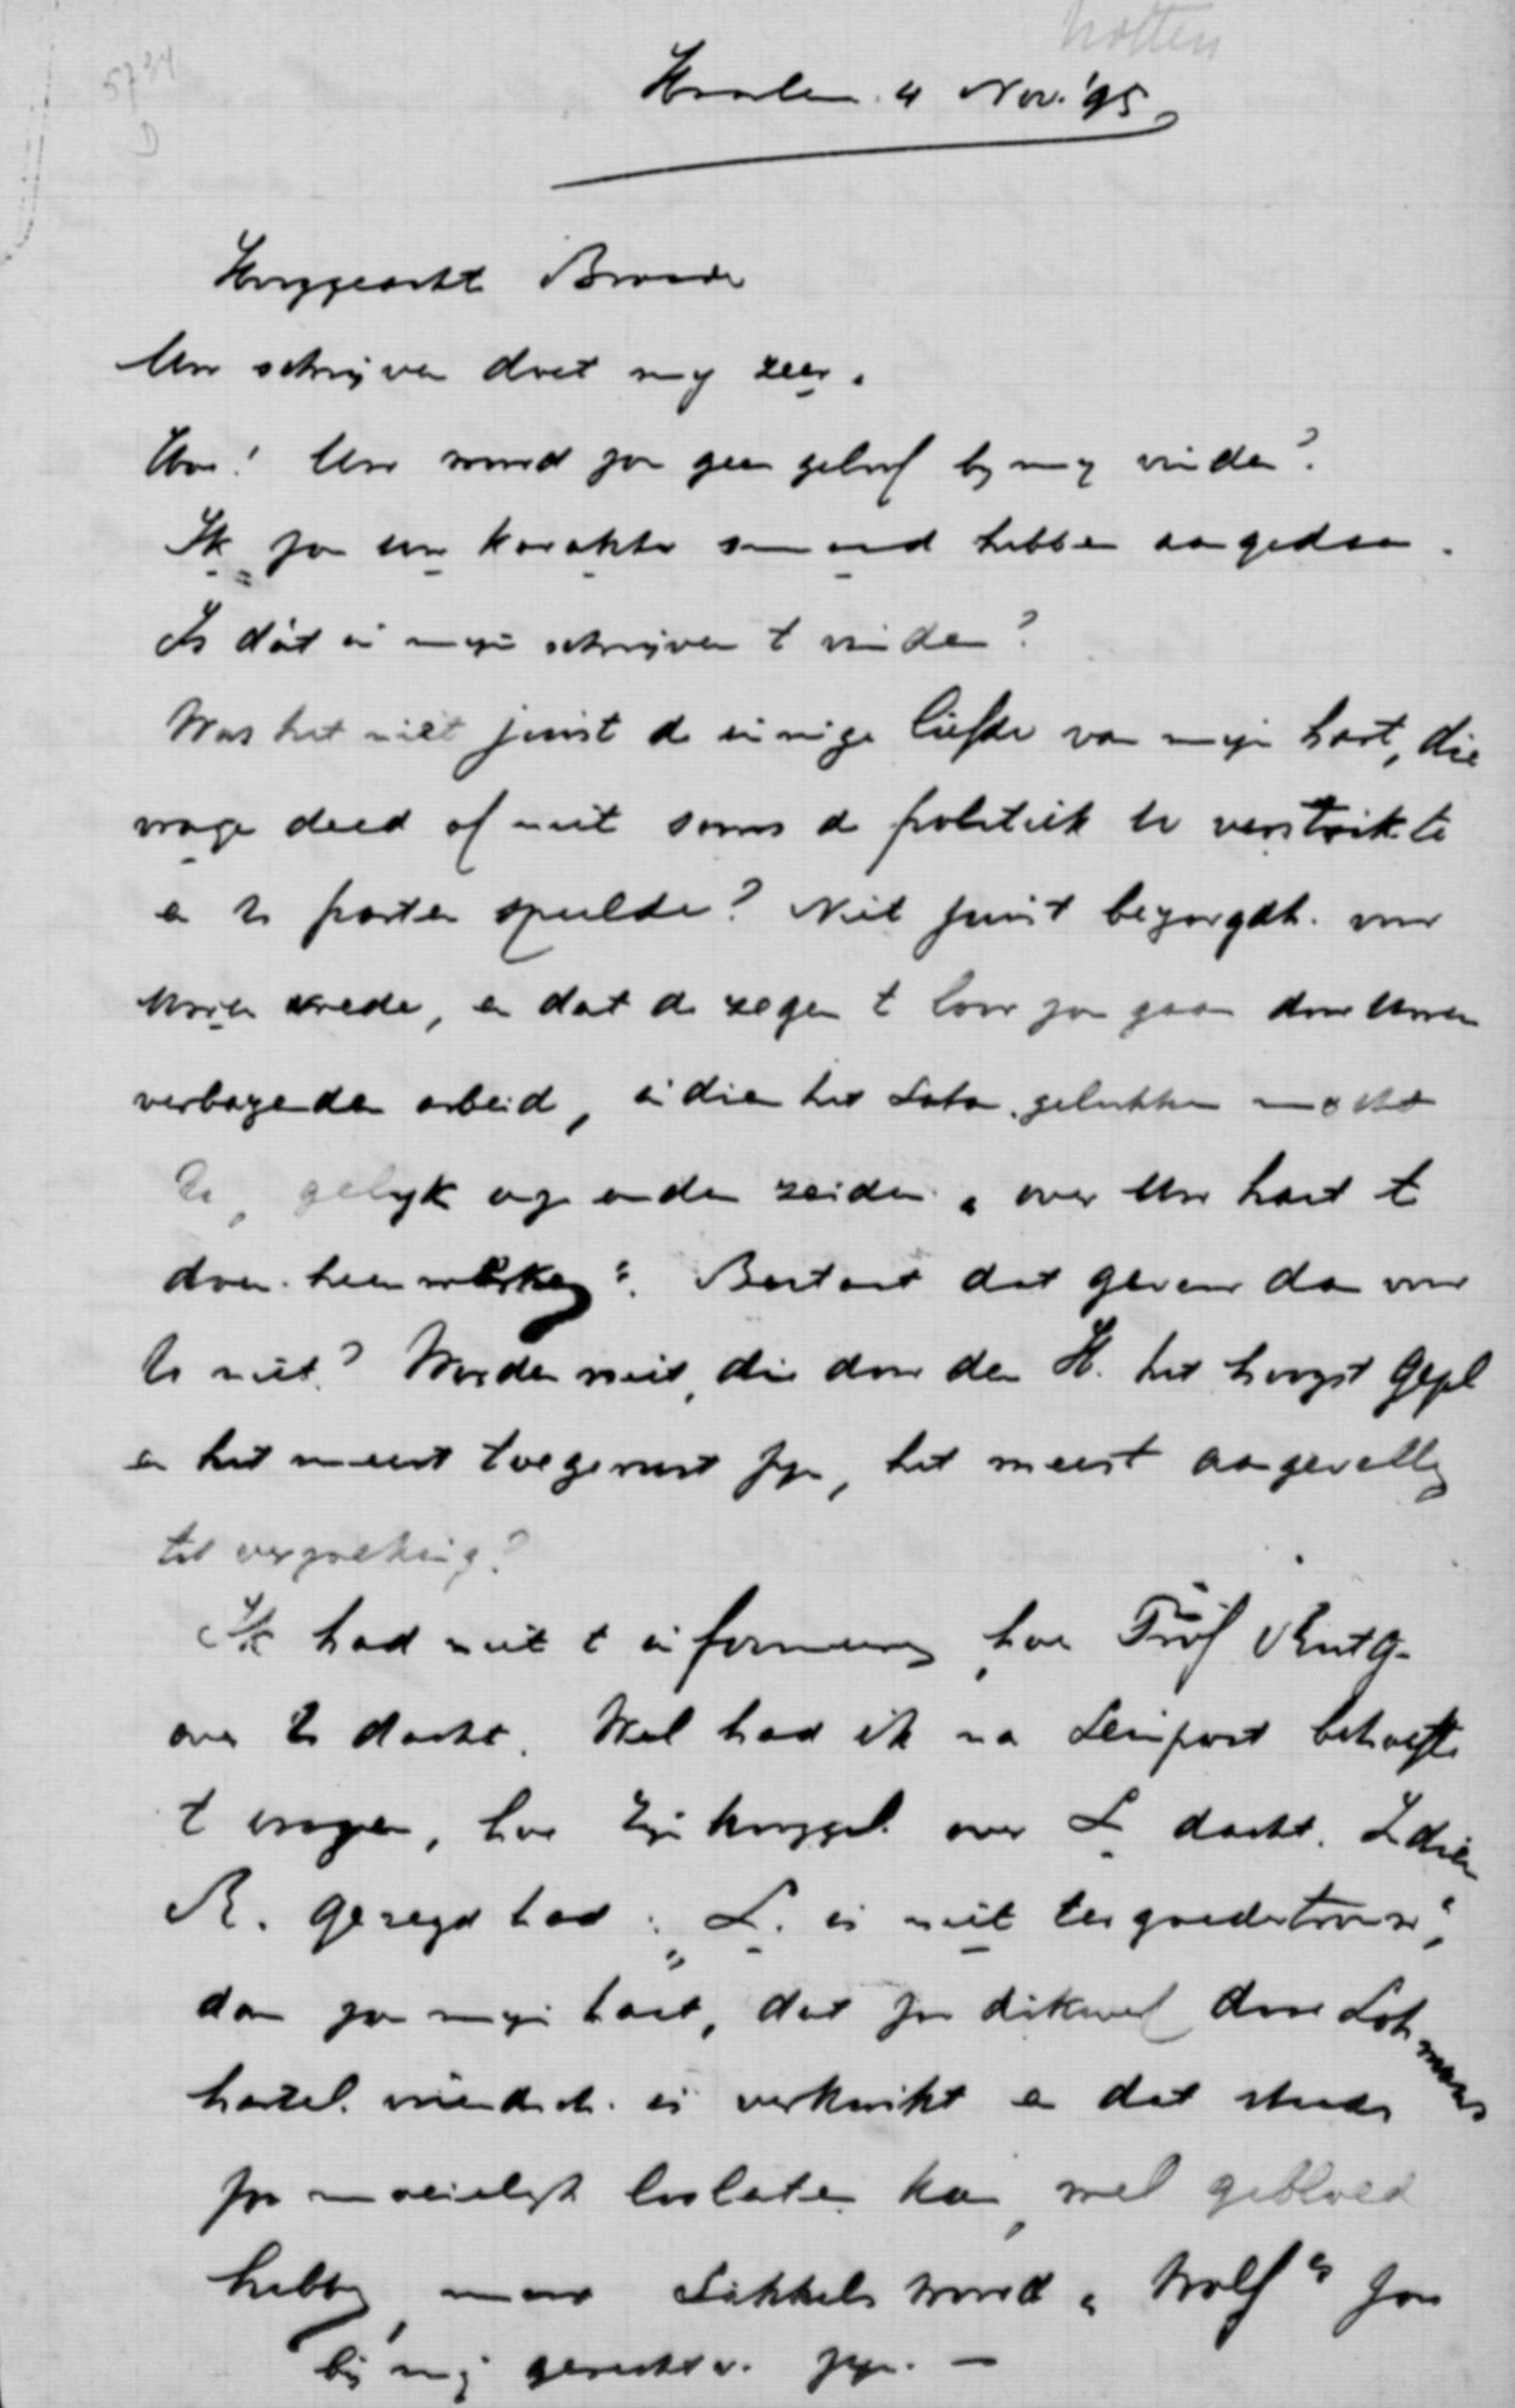 Holten
5734
D
Haarlem 4 Nov. '95
Hooggeachte Broeder
Uw schrijven doet mij zeer.
Hoe! Uw woord zou geen geloof bij mij vinden?
Ik zou uw karakter smaad hebben aangedaan.
Is dát in mijn schrijven t vinden?
Was het niet juist de innige liefde van mijn hart, die
vrage deed of niet soms de politiek U verstrikte
en U parten speelde? Niet juist bezorgdh. voor
Uwen vrede, en dat de zegen t loor zou gaan door Uwen
verbazenden arbeid, indien het Satan gelukken mocht
U, gelijk wij onder zeiden „over Uw hart t
doen heenwerken". Bestaat dat gevaar dan voor
U niet? Worden niet, die door den H. het hoogst gepl
en het meest toegerust zijn, het meest aangevallen
tot verzoeking?
Ik had niet t informeeren, hoe Prof Rutg.
over U dacht. Wel had ik na Seinpost behoefte
t vragen, hoe Zijnhooggel. over L dacht. Indien
R. gezegd had: „L. is niet ter goedertrouw",
dan zou mijn hart, dat zoo dikwerf door Lohmans
hartel. vriendsch. is verkwikt en dat steeds
zoo moeielijk loslaten kan, wel gebloed
hebben, maar Sikkels woord „Wolf" zou
bij mij gerechtv. zijn. —